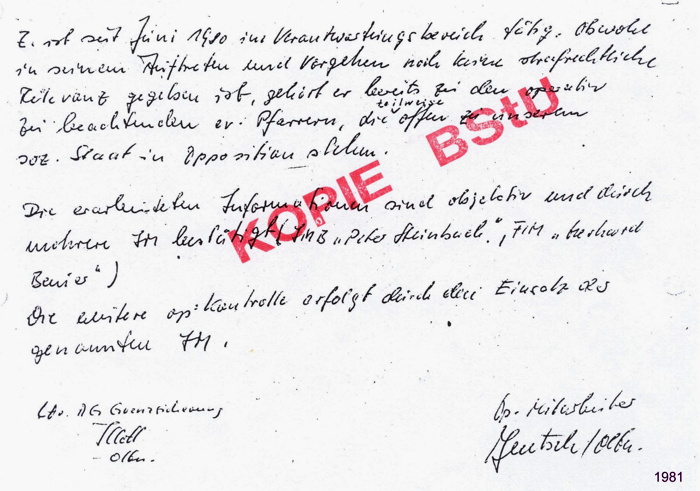 Z. ist seit Juni 1980 im Verantwortungsbereich tätig. Obwohl
in seinem Auftreten und Vorgehen noch keine strafrechtliche
Relevanz gegeben ist, gehört er bereits zu den operativ
zu beachtenden ev. Pfarrern, die teilweise offen zu unserem
soz. Staat in Opposition stehen.
KOPIE BStU
Die erarbeiteten Informationen sind objektiv und durch
mehrere IM bestätigt (IMB „Peter Steinbach", FIM „Gerhard
")
Die weitere op. Kontrolle erfolgt durch den Einsatz der
genannten IM.
Ltr. AG Grenzsicherung
Op. Mitarbeiter
Oltn.
Jentsch/Oltn.
1981